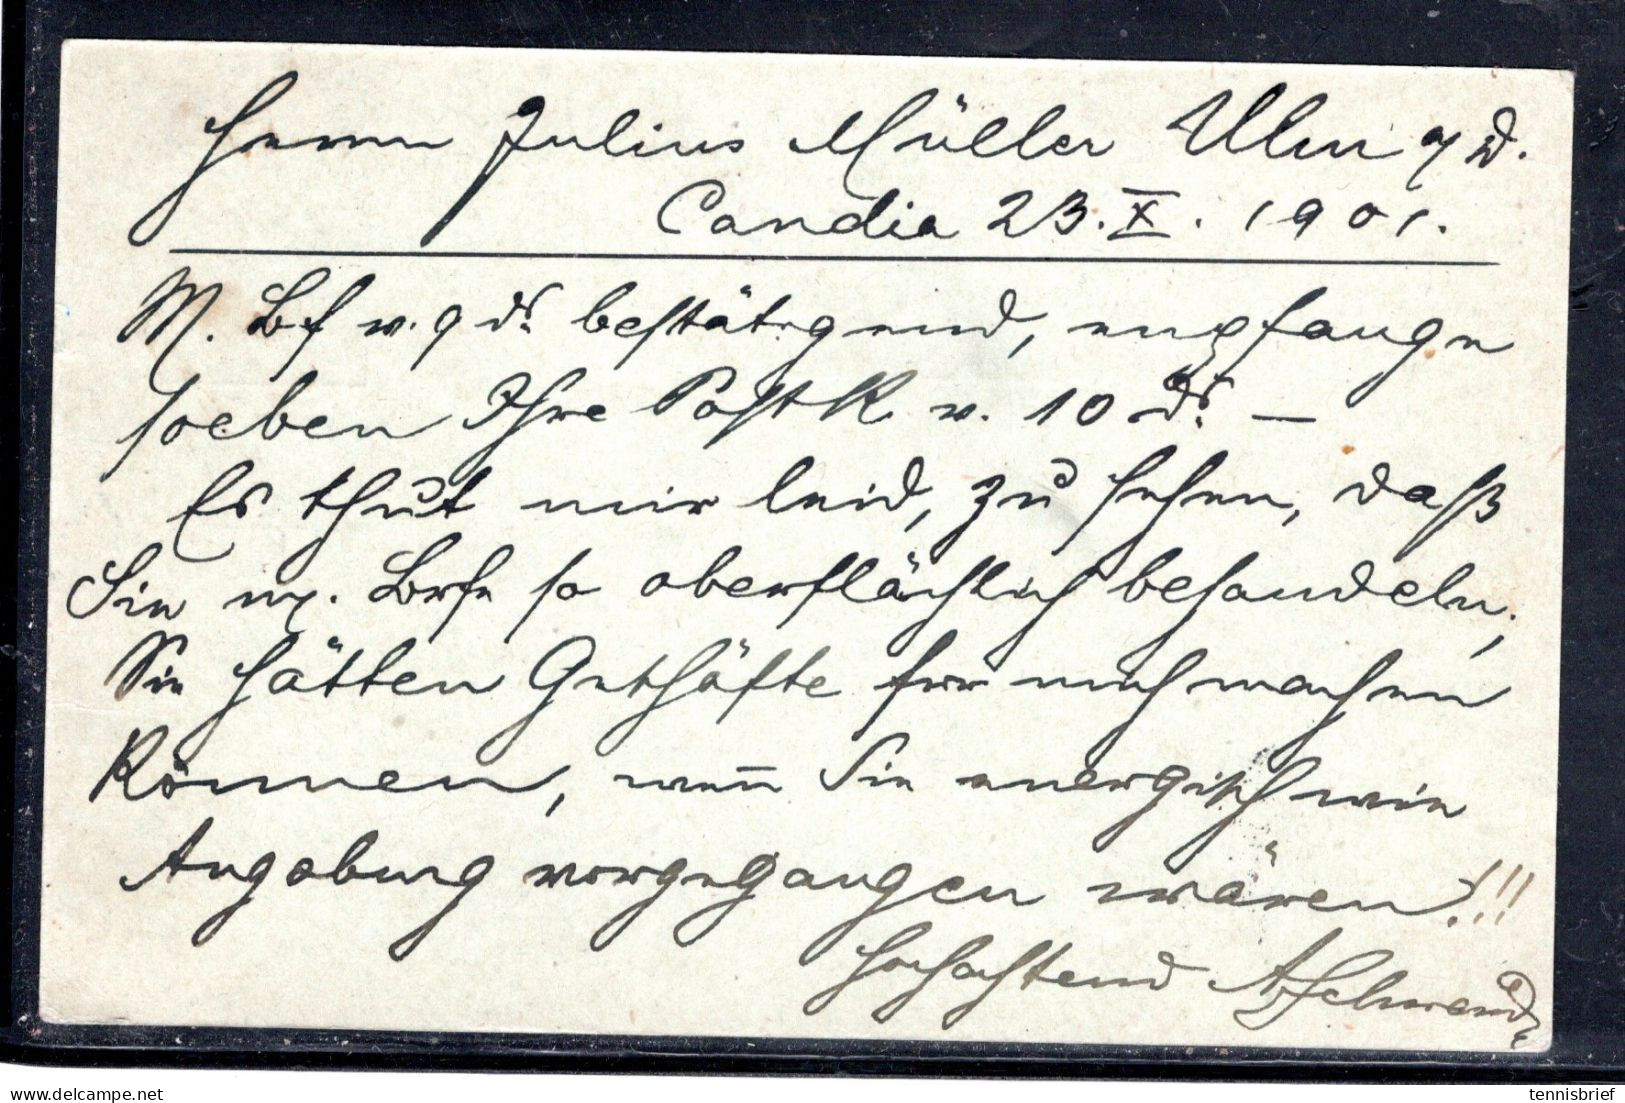 Herrn Julius Müller Ulm a/D.
Candia 23. X. 1901.
M. Bf v. 9 ds. bestätigend, empfange
soeben Ihre PostK v. 10 ds. —
Es thut mir leid, zu sehen, daß
Sie m. Brfe so oberflächlich behandeln;
Sie hätten Geschäfte für mich machen
können, wenn Sie energisch wie
Augsburg vorgegangen wären!!!
hochachtend
delcampe.net
tennisbrief